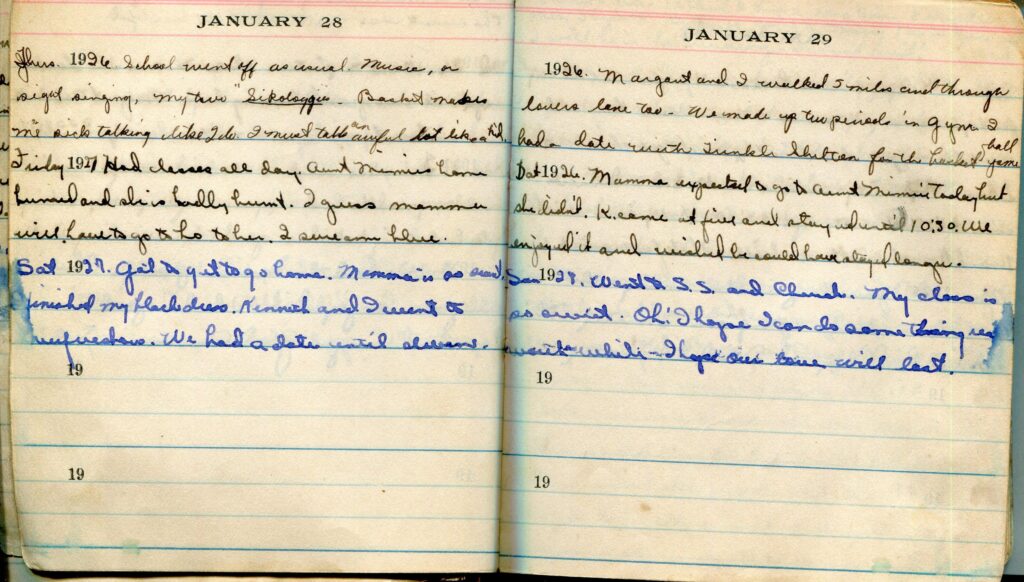 JANUARY 28
Thurs. 1926. School went off as usual. Music, or
sight singing, my two "Sikologgies. Basket makes
me sick talking like I do. I must talk an awful lot like a
Friday 1927 Had classes all day. Aunt Mimi's home
burned and she is badly burnt. I guess mamma
will have to go to to her. I sure am blue.
Sat 1927. Got to get to go home. Mamma is so sweet.
finished my black dress. Kenneth and I went to
We had a date until eleven.
19
19
JANUARY 29
1926. Margaret and I walked 5 miles and through
lovers lane too. We made up two periods in Gym. I
had a date with for the basket ball game
Sat 1926. Mamma expected to go to Aunt Mimi's today but
she didn't. K. came at five and stayed until 10:30. We
enjoyed it and wished he could have stayed longer.
Sun 1927. Went to S.S. and Church. My class is
so sweet. Oh! I hope I can do some thing
worth while - I hope our love will last.
19
19